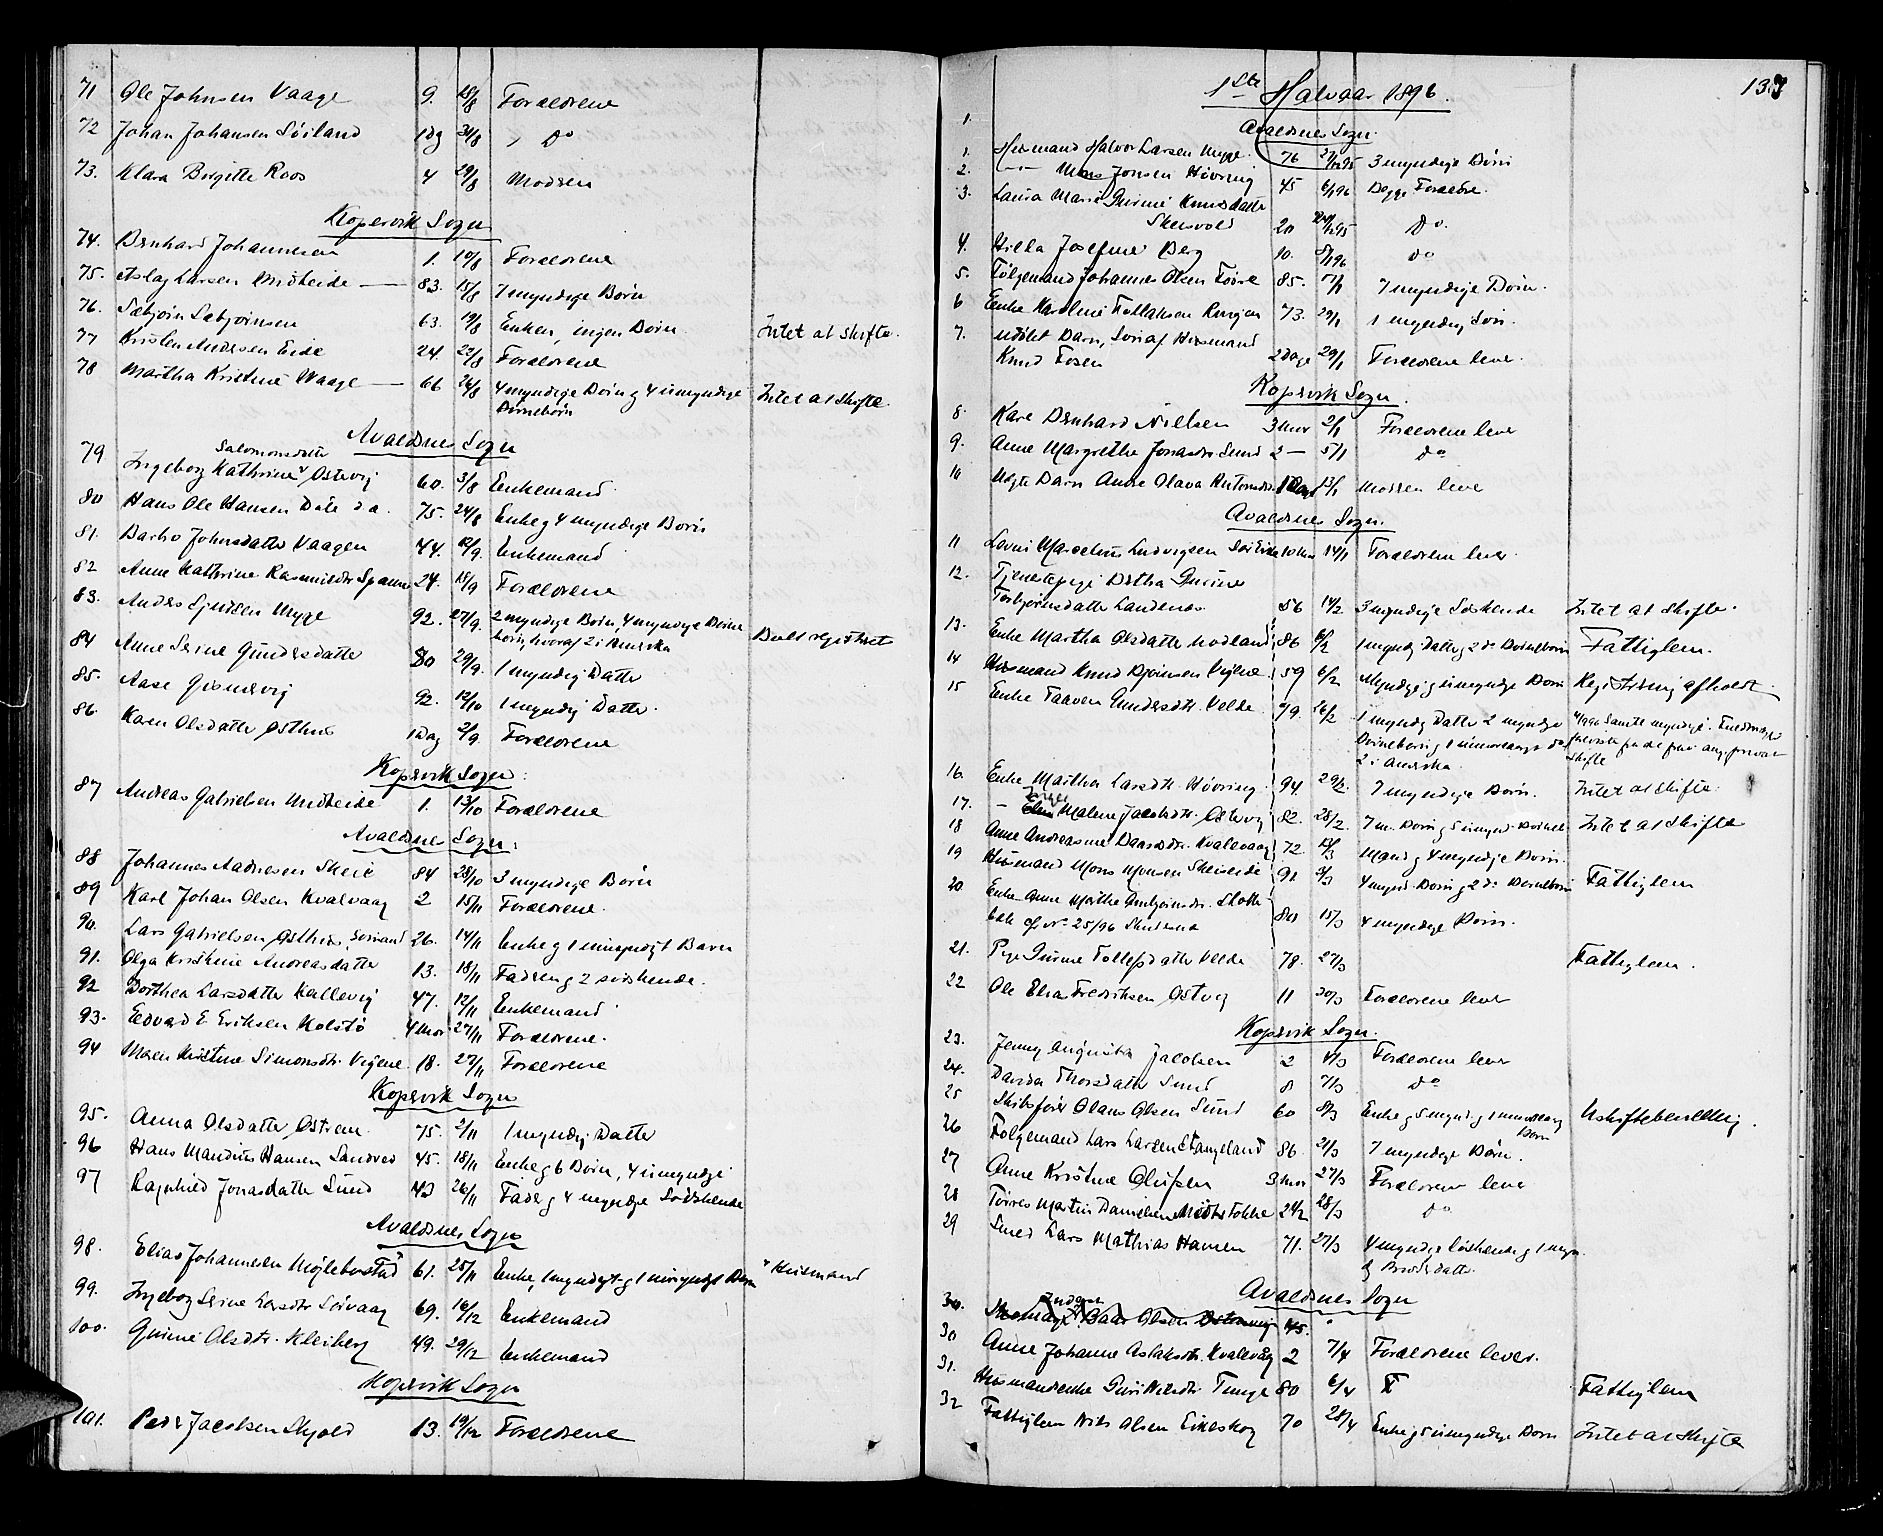 71 Ole Johnsen Vaage 9. 18/8 Forældrene
72 Johan Johansen Søiland 1 Dg 31/8 " Do
73. Klara Birgitte Roos 4 29/8 Modren
Kopervik Sogn
74. Bernhard Johannesen 1. 10/8 Forældrene
75. Aslag Larsen Midheide — 83. 15/8 7 myndige Børn
76. Sæbjørn Sæbjørnsen 63. 19/8 Enken, ingen Børn. Intet at skifte.
77 Kristen Andersen Eide 24. 22/8 Forældrene
78 Martha Kristine Waage — 66 26/8 4 myndige Børn g 4 umyndige Intet at skifte.
Børnebørn
Avaldsnes Sogn
79 Salomonsdatter
Ingeborg Kathrine Østevig 60. 3/8 Enkemand
80 Hans Ole Hansen Dale d.a. 75. 24/8 Enke g 4 myndige Børn
81. Barbro Johnsdatter Vaagen 44. 12/9. Enkemand
82 Anne Kathrine Rasmusdtr Spanne 24. 18/9 Forældrene
83. Anders Sjursen Mygge 92. 27/9. 2 myndige Børn, 4 myndige Børne
børn, hvoraf 2 i Amerika Boet registreret
84 Anne Serine Gundersdatter 80 29/9. 1 myndig Datter
85. Aase Grønevig 92. 12/10 1 myndig Datter.
86. Karen Olsdatter Østhus 1 Dag 2/9. Forældrene
Kopervik Sogn:
87 Andreas Gabrielsen Midheide 1. 13/10 Forældrene
Avaldsnes Sogn:
88 Johannes Andersen Skeie 84 28/10 3 myndige Børn
89 Karl Johan Olsen Kvalvaag 2 15/11 Forældrene.
90. Lars Gabrielsen Østhus, Sømand 26. 14/11 Enke g 1 umyndigt Barn
91. Olga Kristine Andreasdatter 13. 18/11 Fadren g 2 søskende.
92 Dorthea Larsdatter Kallevig 47. 12/11 Enkemand
93. Edvard E. Eriksen Kolstø 4 Mdr 27/11 Forældrene.
94 Maren Kristine Simonsdtr. Visnes 18. 27/11 Forældrene
Kopervik Sogn
95. Anna Olsdatter Østrem 75. 2/11 1 myndig Datter
96 Hans Mandius Hansen Sandved 45. 18/11 Enke g 6 Børn, 4 umyndige
97 Ragnhild Jonasdatter Sund 43 26/11 Fader g 4 myndige Sødskende
Avaldsnes Sogn
98. Elias Johannesen Møglebustad " 61. 25/11 Enke, 1 myndigt g 1 umyndigt Barn " Husmand
99. Ingeborg Serine Larsdtr Sørvaag 69. 16/12 Enkemand
100. Gurine Olsdtr. Kleiberg 49. 29/12 Enkemand
Kopervik Sogn
101. Peder Jacobsen Skjold 13. 19/12 Forældrene
137
1ste Halvaar 1896.
1.
Avaldsnes Sogn.
1. Husmand Halvor Larsen Mygge. 76 27/12 95 3 myndige Børn
2. — Mons Jonsen Høvring 45 6/1 96 Begge Forældre.
3. Laura Marie Gurine Knudsdatter
Skeisvold 20 95 Do.
4. Hilda Josefine Berg 10. 8/1 96 do
5. Følgemand Johannes Olsen Tøsse 85. 7 myndige Børn.
6 Enke Karoline Tollaksen 73. 29/1 1 myndig Søn.
7. Udøbt Barn, Søn af Husmand
Knud Fosen 2 Dage 29/1 Forældrene lever.
Kopervik Sogn.
8. Kare Bernhard Nilsen 3 Mdr 2/1 Forældrene lever
9. Anne Margrethe Jonasdtr Sund 2 — 5/1 do
10 Udgte Barn Anne Olava 1 Dag 13/1 Modren lever
Avaldsnes Sogn.
11 Marcelius Ludvigsen 10 Mdr 14/1 Forældrene lever.
12. Tjenestepige Bertha Gurine
Torbjørnsdatter Landenes 56 14/2 3 myndige Søskende Intet at skifte.
13. Enke Martha Olsdatter Modland 86 6/2 1 myndig Datter g 2 do Børnebørn Fattiglem.
14 Husmand Knud Bjørnsen Visnes 59 6/2 Myndige g umyndige Børn Registrering afholdt.
15 Enke Taaven Gundersdtr. Velde 79. 26/2 1 myndig Datter 2 myndige
Børnebørn g 1 umyndigt do
2 i Amerika. skifte
16. Enke Martha Larsdtr. Høvring. 94 29/2. 7 myndige Børn. Intet at skifte.
17. — Malene Jacobsdtr. Østevig 82. 28/2. 7 m. Børn g 5 umynd. Børneb. Intet at skifte
18 Anne Andreasine Baardsdtr. Kvalevaag 72. Mand g 4 myndige Børn.
19 Husmand Mons Monsen Skeiseide 91. 9/3 4 mynd. Børn g 2 do Børnebørn Fattiglem
20. Enke Anne Marthe
cf. No 25/96 Skudenes 80 15/3 4 myndige Børn.
21. Pige Gurine Tollefsdatter Velde 78. 27/3 Fattiglem.
22 Ole Elias Fredriksen Østvig 11 30/3 Forældrene lever
Kopervik Sogn.
23. Jenny Augusta Jacobsen 2 4/3 Forældrene lever
24. Davida Thorsdatter Sund 8 7/3 do
25 Skibsfører Olaus Olsen Sund 60 8/3 Enke g 5 mynd. g 1 umyndig Uskiftebevilling.
Børn
26 Følgemand Lars Larsen Stangeland 86. 21/3 7 myndige Børn.
27 Anne Kristine Olufsen 3 Mdr 27/3 Forældrene lever
28 Tørres Martin Danielsen Midtre Tokke 24/2 28/3 do
29 Smed Lars Mathias Hansen 71. 27/3 4 myndige søskende g 1 mynd.
Brodersdatter.
Avaldsnes Sogn
30. Baar Olsen 45. "
30 Anne Johanne Aslaksdtr. Kvalevaag 2 7/4 Forældrene lever.
31. Husmandsenke Guri Nilsdtr. Tunge 80 6/4 Fattiglem
32 Fattiglem Nils Olsen Eikeskog 70 28/4 Enke g 5 umyndige Børn Intet at skifte